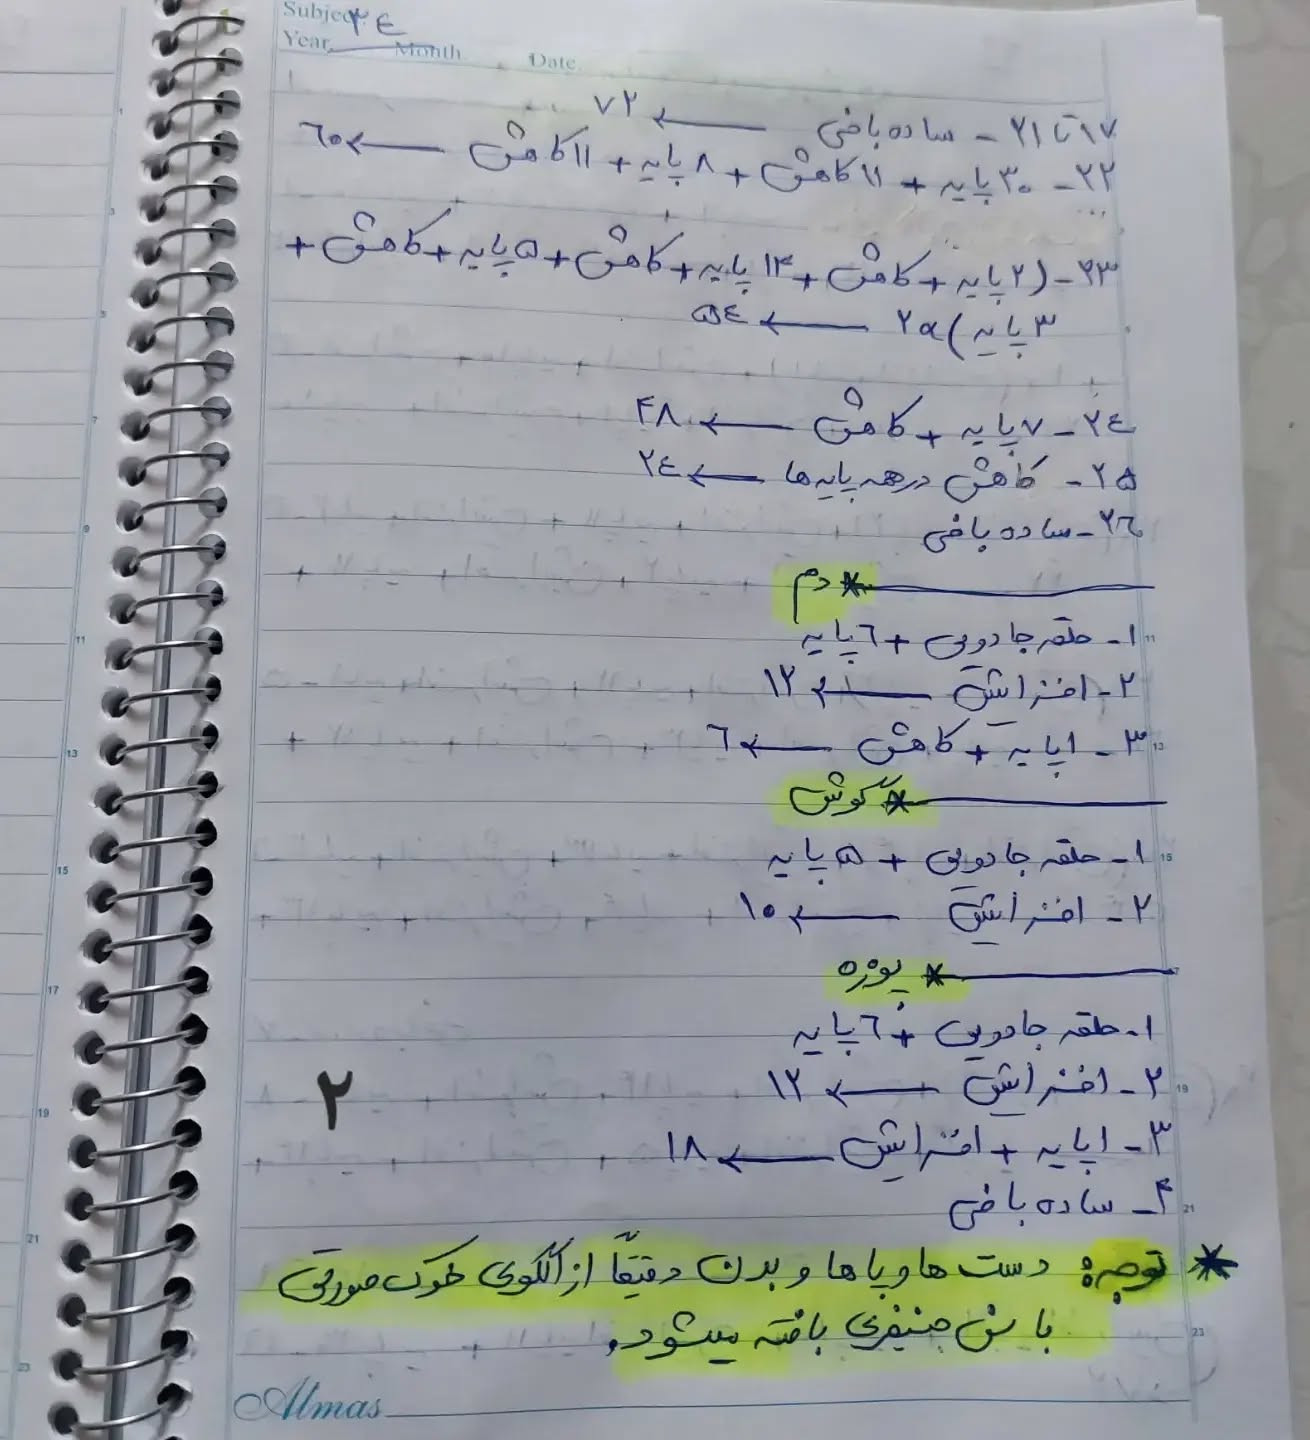 Subject: ۳٤
Year. Month. Date.
۱۷ تا ۲۱ - ساده بافی ← ۷۲
۲۲ - ۳۰ پایه + ۱۱ کاهش + ۸ پایه + ۱۱ کاهش ← ٦۰
۲۳ - (۲ پایه + کاهش + ۱۴ پایه + کاهش + ۵ پایه + کاهش +
۳ پایه)
۲٤ - ۷ پایه + کاهش ← ۴۸
۲۵ - کاهش در همه پایه ها ← ۲٤
۲٦ - ساده بافی
* دم
۱ - حلقه جادویی + ٦ پایه
۲ - افزایش ← ۱۲
۳ - ۱ پایه + کاهش ← ٦
* گوش
۱ - حلقه جادویی + ۵ پایه
۲ - افزایش ← ۱۰
* پوزه
۱ - حلقه جادویی + ٦ پایه
۲ - افزایش ← ۱۲
۳ - ۱ پایه + افزایش ← ۱۸
۴ - ساده بافی
۲
* توجه: دست ها و پاها و بدن دقیقاً از الگوی خوک صورتی
با سن جنیفری بافته میشود.
Almas